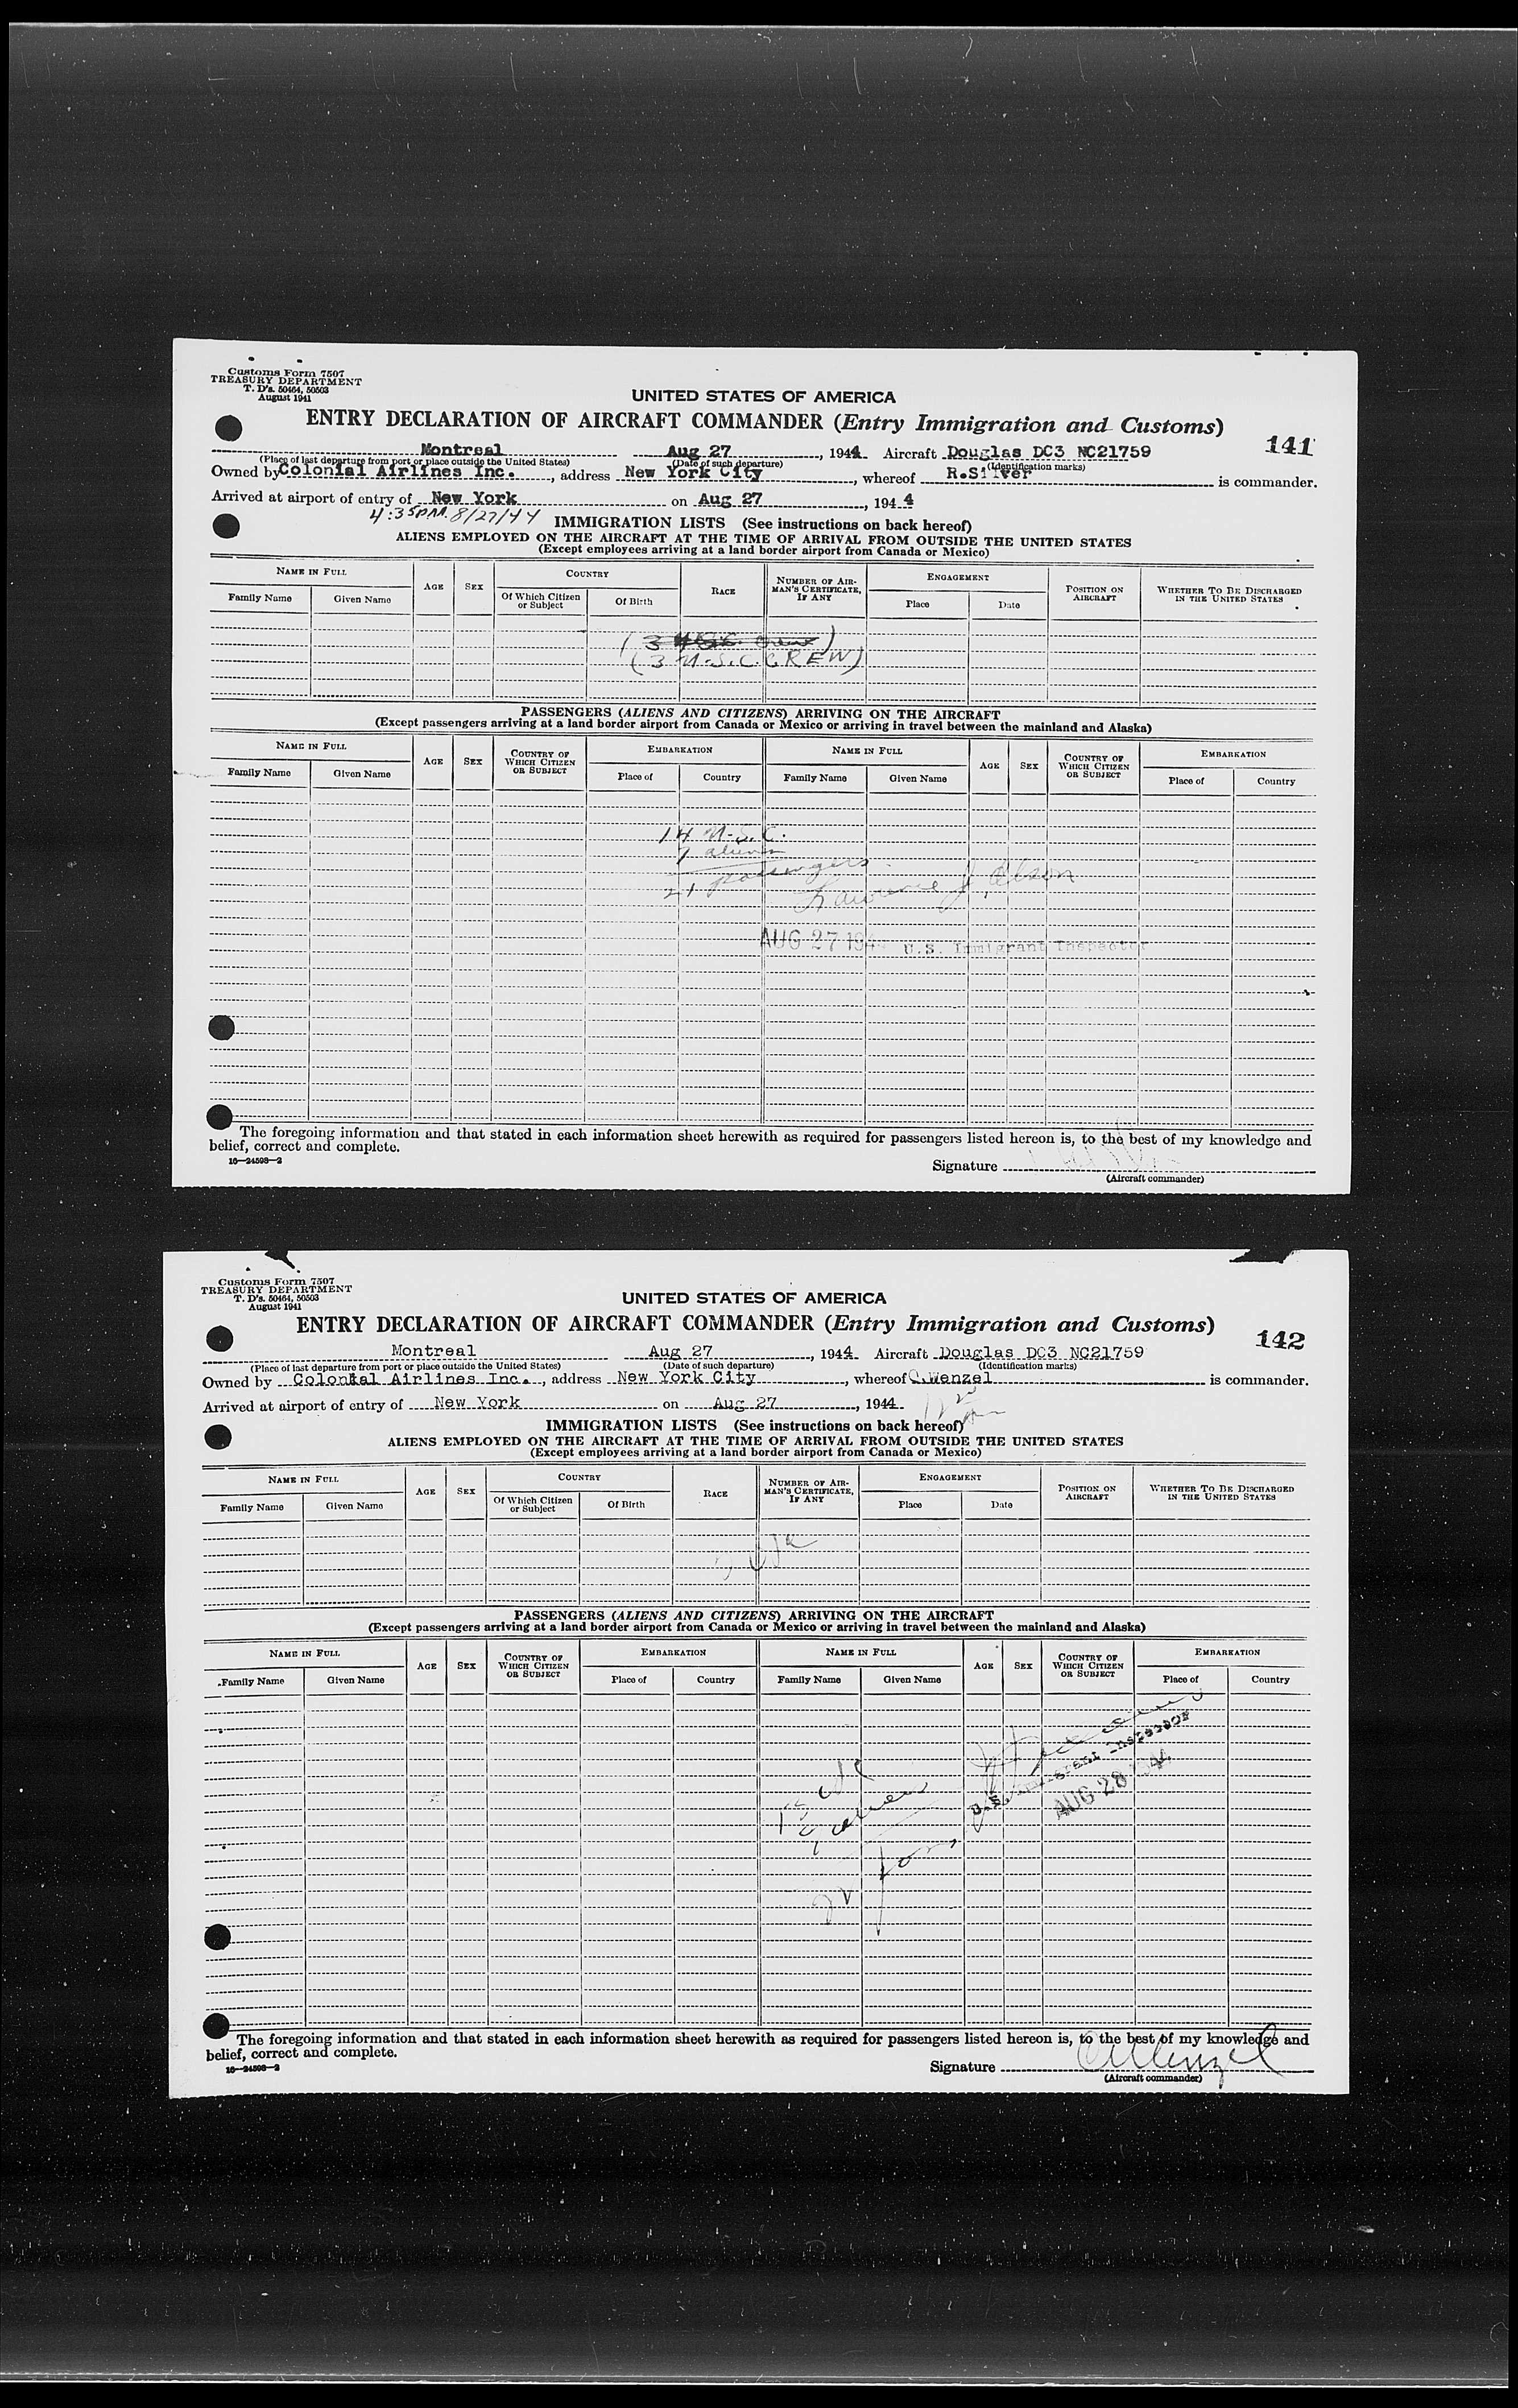 Customs Form 7507
TREASURY DEPARTMENT
T. D's. 50464, 50503
August 1941
UNITED STATES OF AMERICA
ENTRY DECLARATION OF AIRCRAFT COMMANDER (Entry Immigration and Customs)
141
Montreal Aug 27, 1944 Aircraft Douglas DC3 NC21759
(Place of last departure from port or place outside the United States) (Date of such departure) (Identification marks)
Owned by Colonial Airlines Inc., address New York City, whereof R.Silver is commander.
Arrived at airport of entry of New York on Aug 27, 1944
4:35PM. 8/27/44 IMMIGRATION LISTS (See instructions on back hereof)
ALIENS EMPLOYED ON THE AIRCRAFT AT THE TIME OF ARRIVAL FROM OUTSIDE THE UNITED STATES
(Except employees arriving at a land border airport from Canada or Mexico)
NAME IN FULL AGE SEX COUNTRY RACE NUMBER OF AIRMAN'S CERTIFICATE, IF ANY ENGAGEMENT POSITION ON AIRCRAFT WHETHER TO BE DISCHARGED IN THE UNITED STATES
Family Name Given Name Of Which Citizen or Subject Of Birth Place Date
(3 U.S.C. Crew)
(3 U.S.C. CREW)
PASSENGERS (ALIENS AND CITIZENS) ARRIVING ON THE AIRCRAFT
(Except passengers arriving at a land border airport from Canada or Mexico or arriving in travel between the mainland and Alaska)
NAME IN FULL AGE SEX COUNTRY OF WHICH CITIZEN OR SUBJECT EMBARKATION NAME IN FULL AGE SEX COUNTRY OF WHICH CITIZEN OR SUBJECT EMBARKATION
Family Name Given Name Place of Country Family Name Given Name Place of Country
14 U.S.C.
7 aliens
21 passengers
Lawrence J. Olson
AUG 27 194 U.S. Immigrant Inspector
The foregoing information and that stated in each information sheet herewith as required for passengers listed hereon is, to the best of my knowledge and
belief, correct and complete.
16—24598—2
Signature
(Aircraft commander)
Customs Form 7507
TREASURY DEPARTMENT
T. D's. 50464, 50503
August 1941
UNITED STATES OF AMERICA
ENTRY DECLARATION OF AIRCRAFT COMMANDER (Entry Immigration and Customs)
142
Montreal Aug 27, 1944 Aircraft Douglas DC3 NC21759
(Place of last departure from port or place outside the United States) (Date of such departure) (Identification marks)
Owned by Colonial Airlines Inc., address New York City, whereof C.Wenzel is commander.
Arrived at airport of entry of New York on Aug 27, 1944
IMMIGRATION LISTS (See instructions on back hereof)
ALIENS EMPLOYED ON THE AIRCRAFT AT THE TIME OF ARRIVAL FROM OUTSIDE THE UNITED STATES
(Except employees arriving at a land border airport from Canada or Mexico)
NAME IN FULL AGE SEX COUNTRY RACE NUMBER OF AIRMAN'S CERTIFICATE, IF ANY ENGAGEMENT POSITION ON AIRCRAFT WHETHER TO BE DISCHARGED IN THE UNITED STATES
Family Name Given Name Of Which Citizen or Subject Of Birth Place Date
PASSENGERS (ALIENS AND CITIZENS) ARRIVING ON THE AIRCRAFT
(Except passengers arriving at a land border airport from Canada or Mexico or arriving in travel between the mainland and Alaska)
NAME IN FULL AGE SEX COUNTRY OF WHICH CITIZEN OR SUBJECT EMBARKATION NAME IN FULL AGE SEX COUNTRY OF WHICH CITIZEN OR SUBJECT EMBARKATION
Family Name Given Name Place of Country Family Name Given Name Place of Country
U.S. Immigrant Inspector
AUG 28 1944
alien
The foregoing information and that stated in each information sheet herewith as required for passengers listed hereon is, to the best of my knowledge and
belief, correct and complete.
16—24598—2
Signature CWenzel
(Aircraft commander)